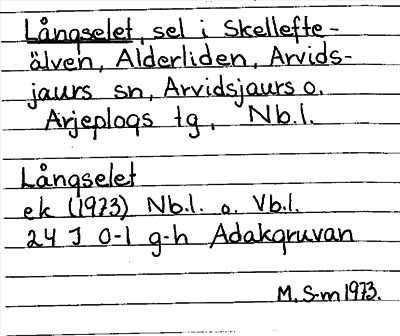 Långselet, sel i Skellefte-
älven, Alderliden, Arvids-
jaurs sn, Arvidsjaurs o.
Arjeplogs tg, Nb.l.
Långselet
ek (1973) Nb.l. o. Vb.l.
24 J 0-1 g-h Adakgruvan
M. S-m 1973.